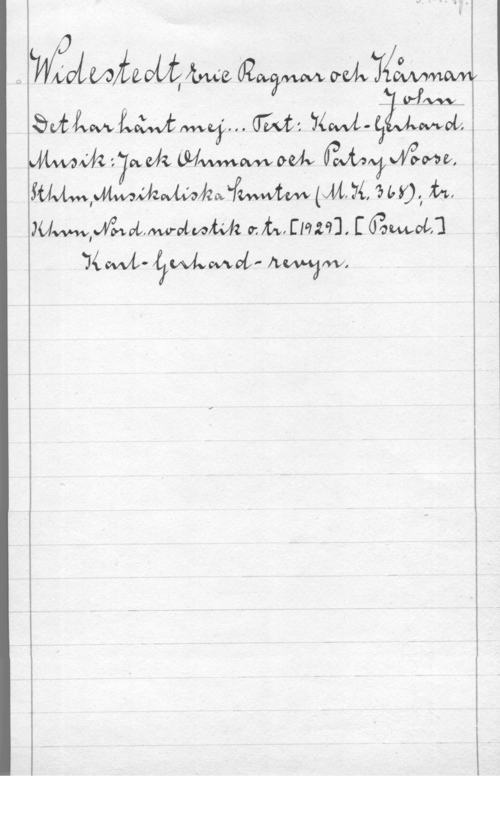 Widestedt, Eric Ragnar och Kårman
John
Det har hänt mej... Text: Karl-Gerhard.
Musik: Jack Ohrman och Patsy Noose.
Sthlm, Musikaliska knuten (M.K. 368); tr.
Khvn, Nord. nodestik o. tr. [1929]. [Pseud.]
Karl-Gerhard-revyn.